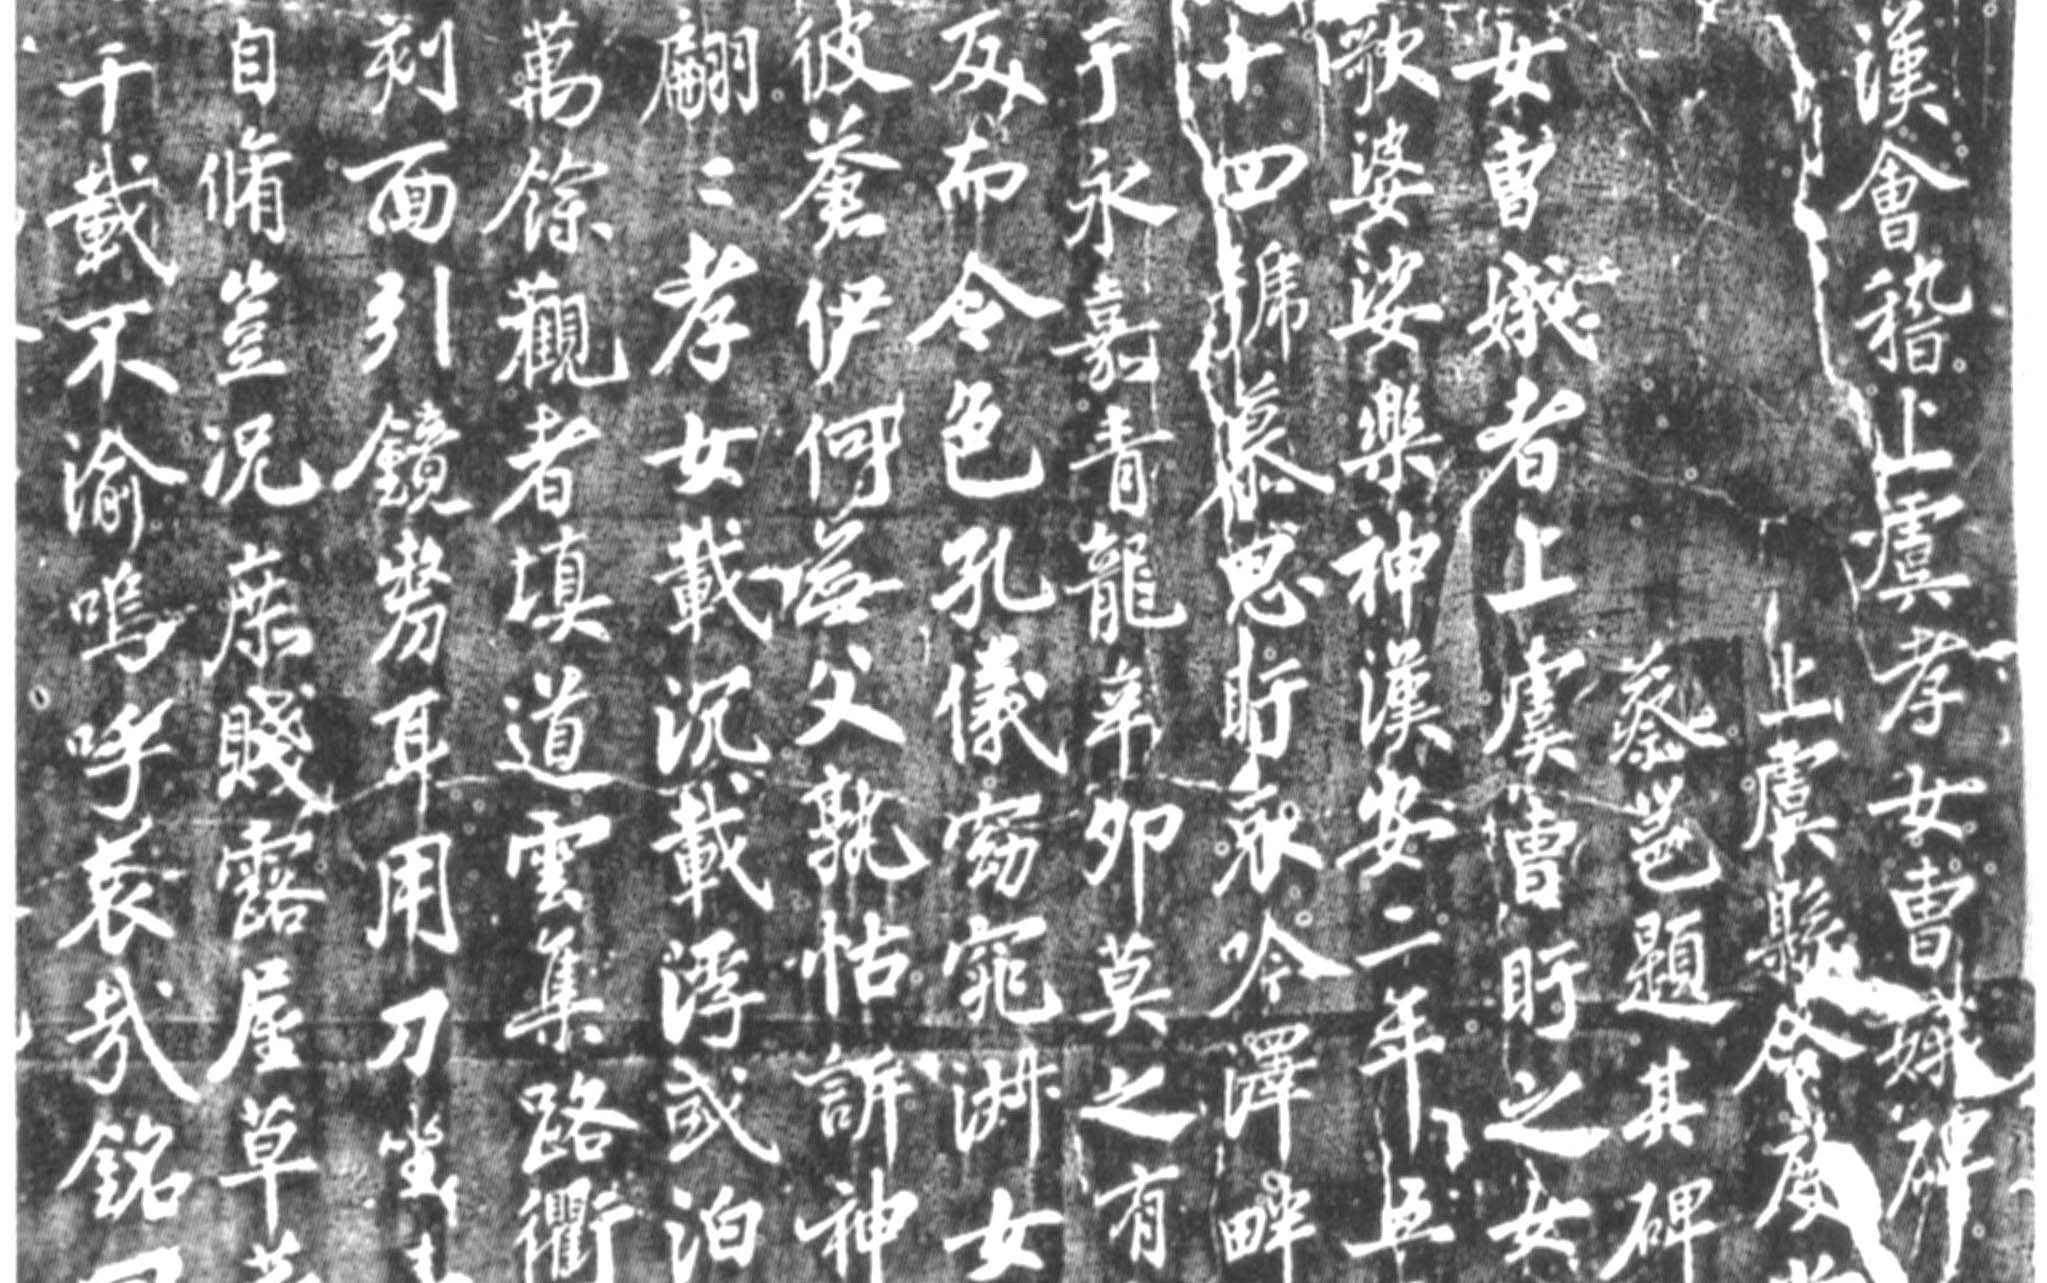 漢會稽上虞孝女曹娥碑
上虞縣令度
蔡邕題其碑
女曹娥者上虞曹盱之女
歌婆娑樂神漢安二年五
十四號慕思盱哀吟澤畔
于永嘉青龍辛卯莫之有
反而令色孔儀窈窕淑女
彼蒼伊何無父孰怙訴神
翩〻孝女載沉載浮或泊
萬餘觀者填道雲集路衢
刻面引鏡剺耳用刀坐
自脩豈況庶賤露屋草
千載不渝嗚呼哀哉銘